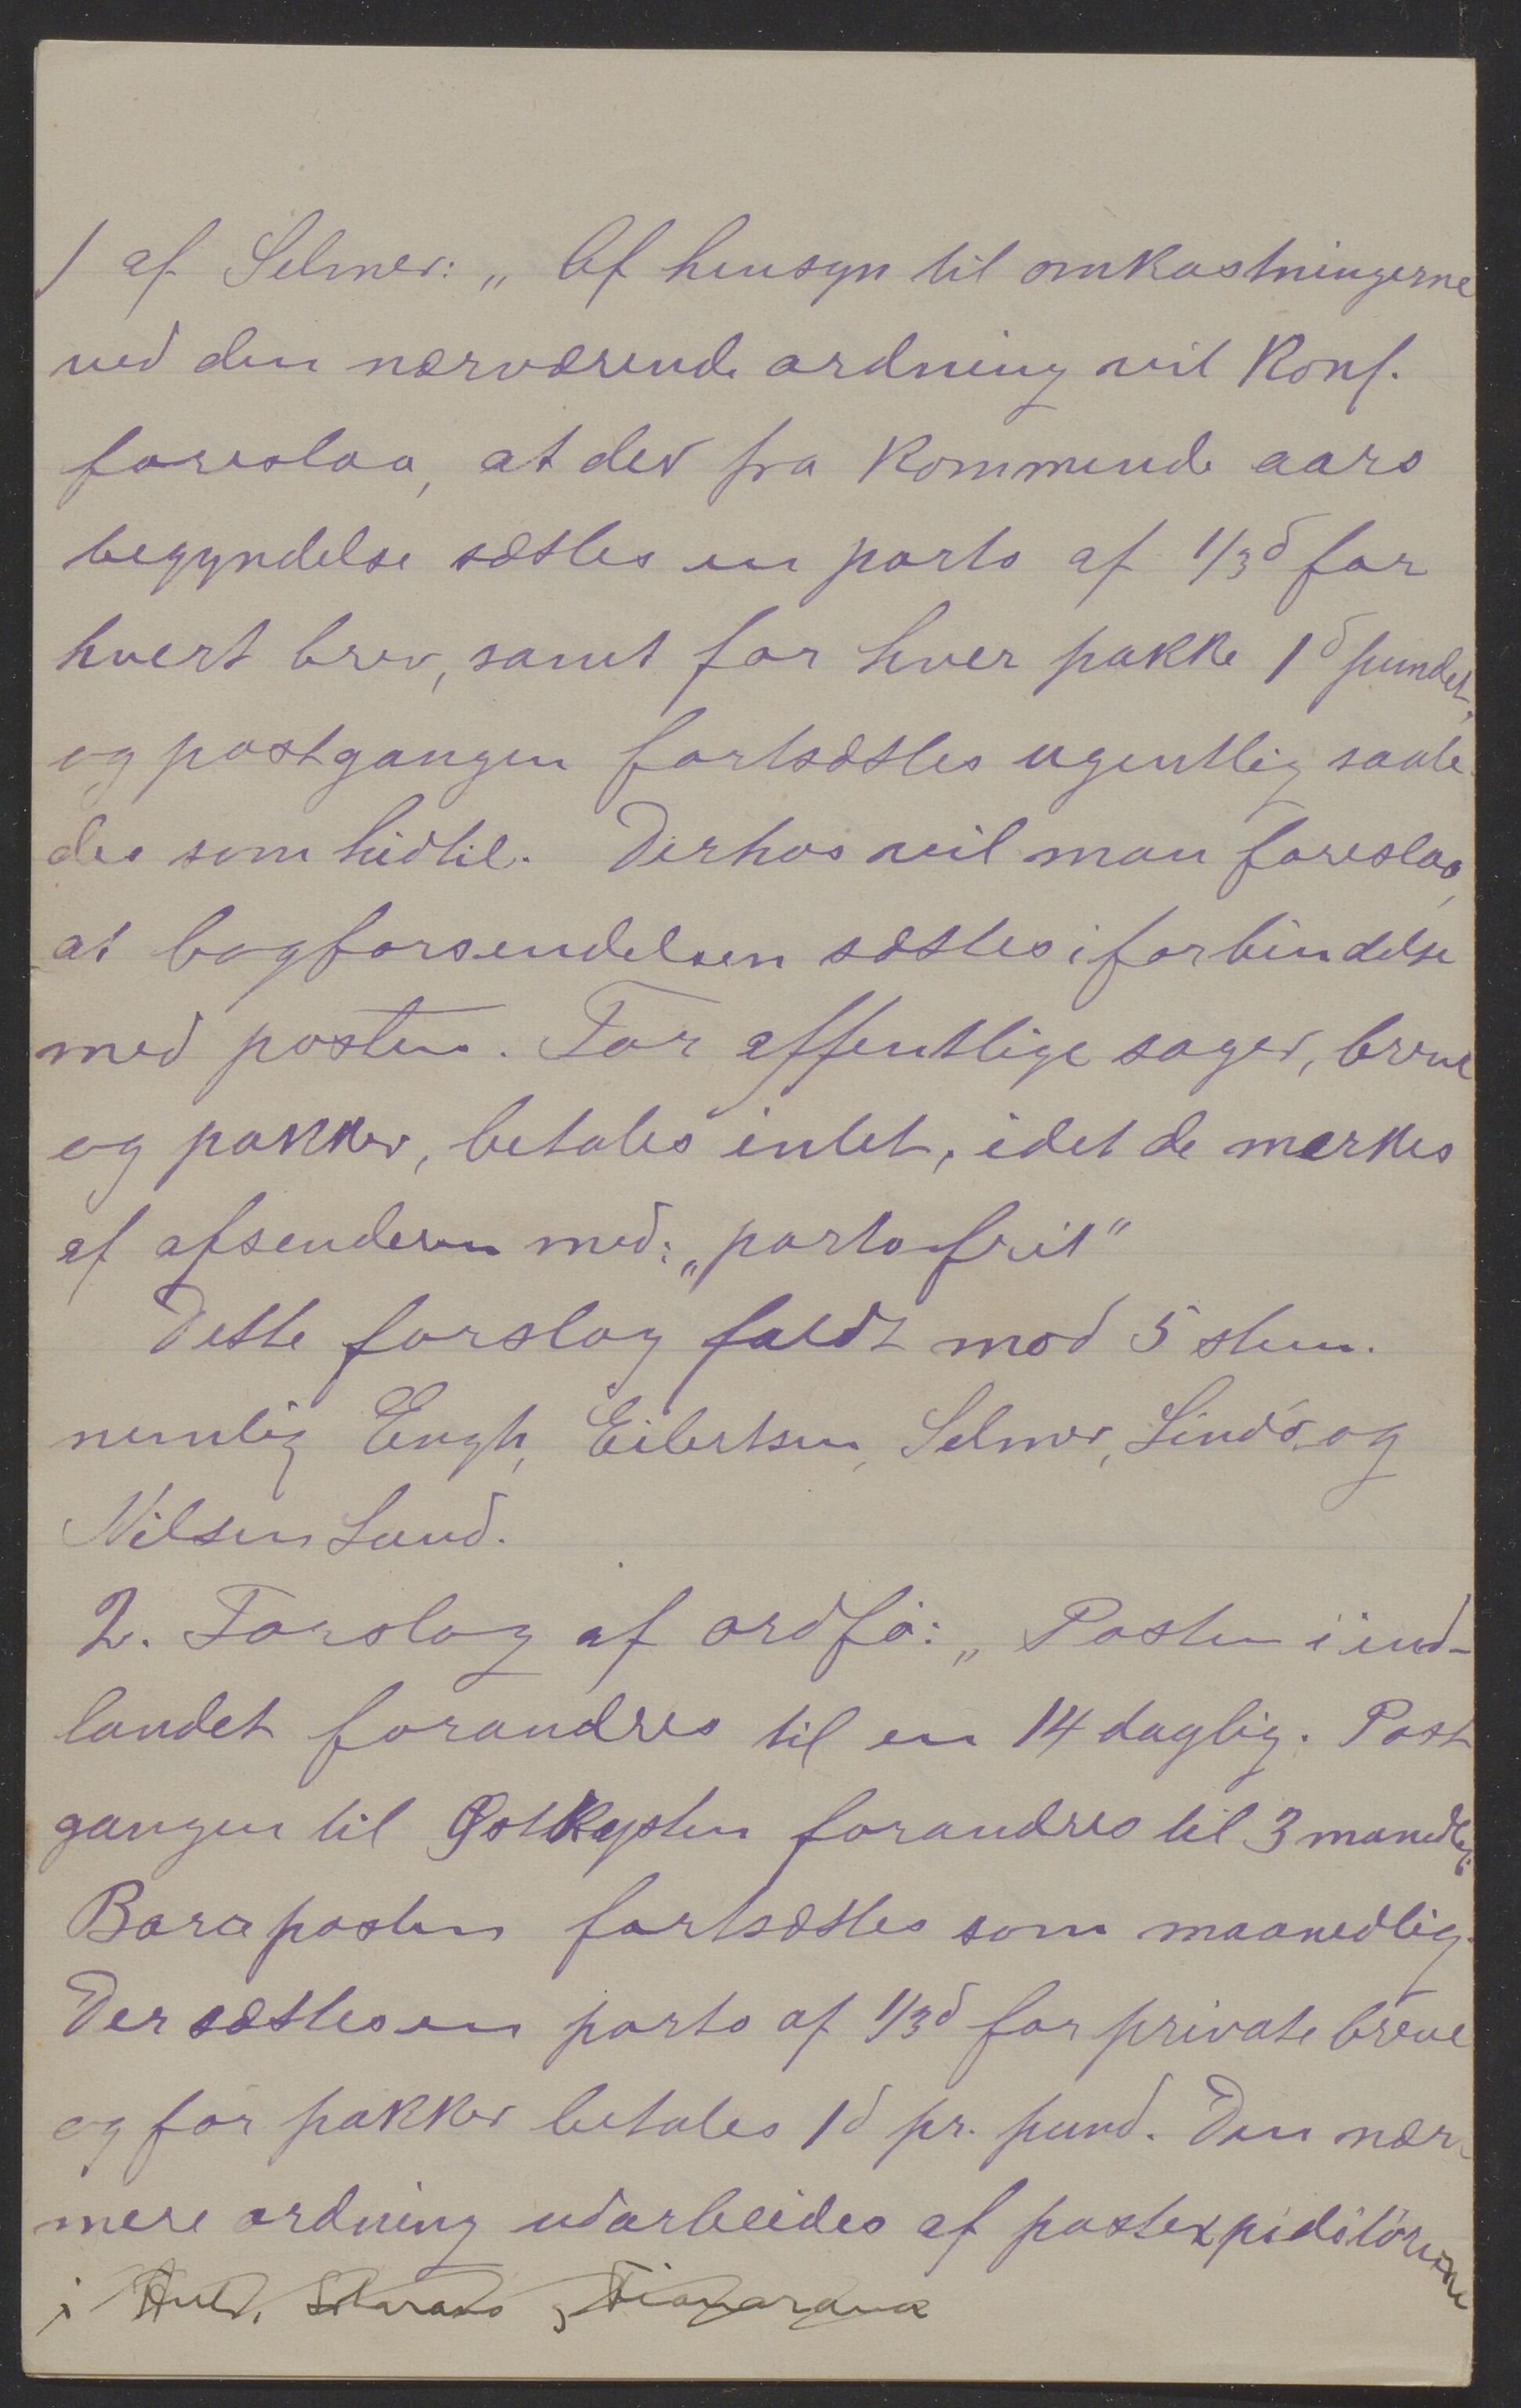 / af Selmer: „Af hensyn til omkastningerne
ved den nærværende ordning vil Konf.
foreslaa, at der fra kommende aars
begyndelse sættes en porto af 1/3 d for
hvert brev, samt for hver pakke 1 d pundet,
og postgangen fortsættes ugentlig saale
des som hidtil. Derhos vil man foreslaa,
at bogforsendelsen sættes i forbindelse
med posten. For offentlige sager, breve
og pakker, betales intet, idet de merkes
af afsenderen med: „portofrit"
Dette forslag faldt mod 5 stem.
nemlig Engh, Eilertsen, Selmer, Lindø og
Nilsen Lund.
2. Forslag af ordfø: „Posten i ind-
landet forandres til en 14 daglig. Post
gangen til Østkysten forandres til 3 manedlig.
Baraposten fortsættes som maanedlig.
Der sættes en porto af 1/3 d for private breve
og for pakker betales 1 d pr. pund. Den nær-
mere ordning udarbeides af postexpeditörerne
i Fianarana